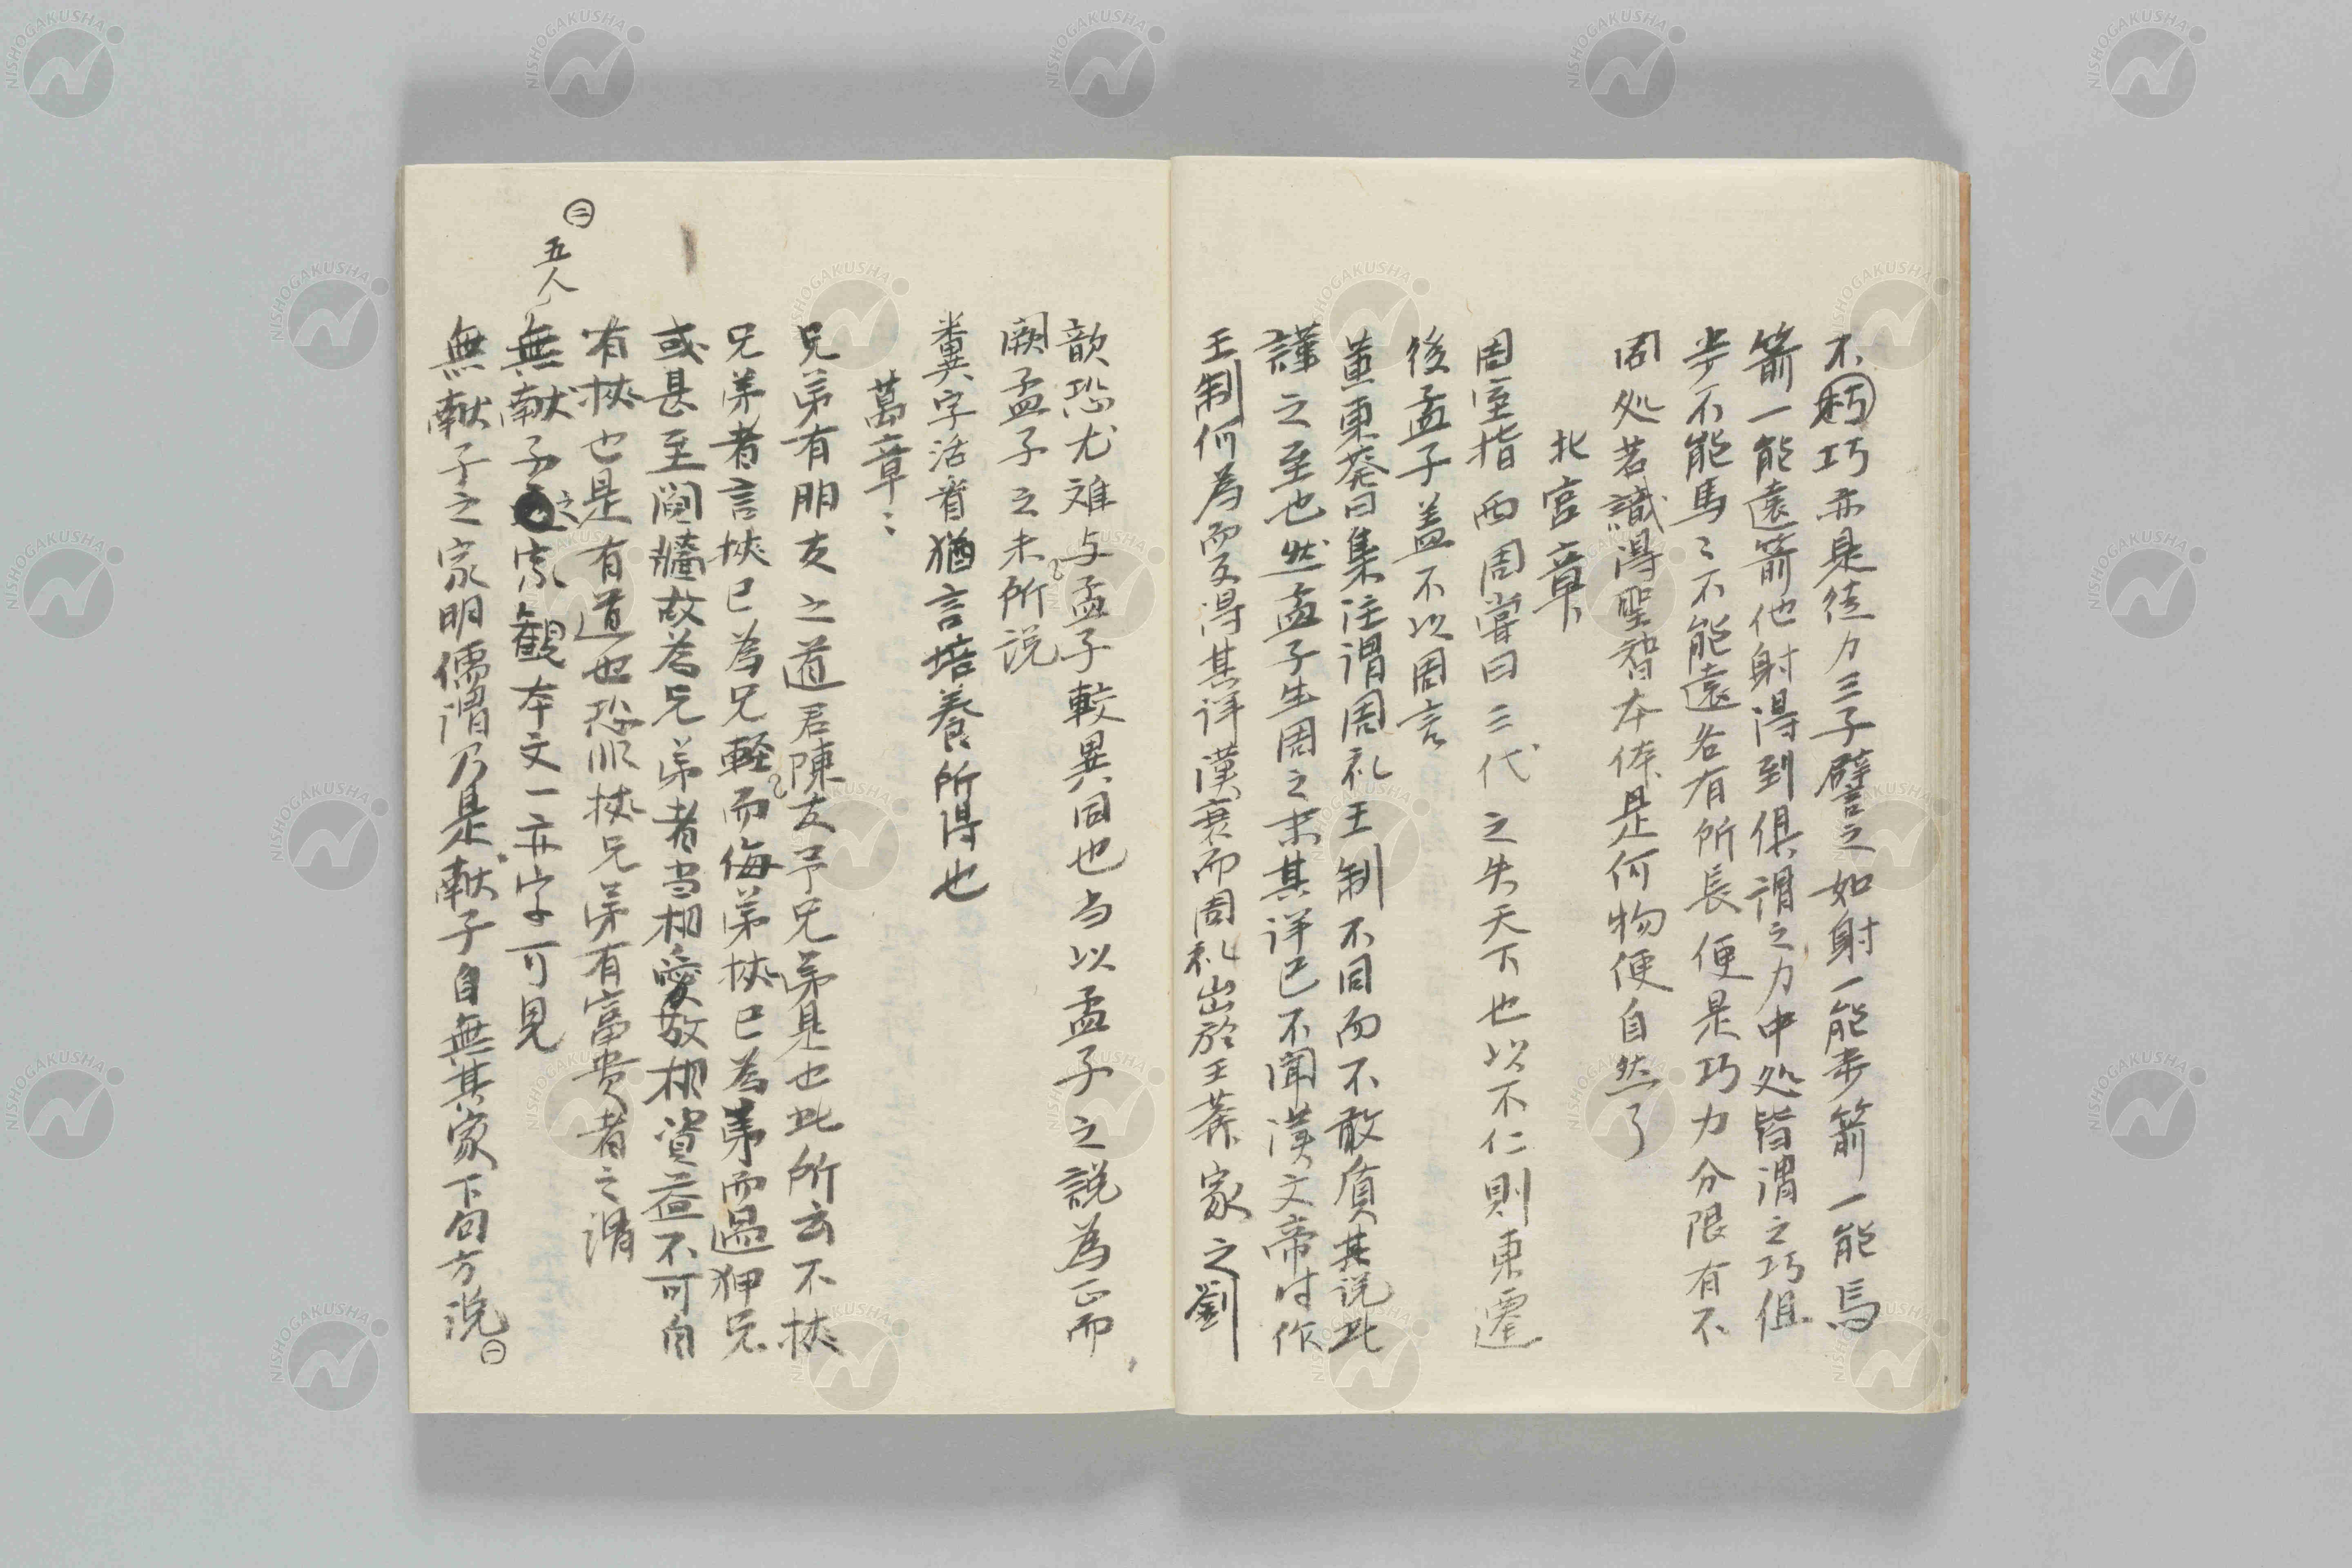 不朽巧亦是徒力三子譬之如射一能步箭一能馬
箭一能遠箭他射得到俱謂之力中処皆謂之巧但
步不能馬〻不能遠各有所長便是巧力分限有不
同処若識得聖智本体是何物便自然了
北宮章
周室指西周嘗曰三代之失天下也以不仁則東遷
後孟子蓋不以周言
董東葵曰集注謂周礼王制不同而不敢質其説此
謹之至也然孟子生周之末其詳已不聞漢文帝时作
王制何為而反得其詳漢衰而周礼出於王莽家之劉
歆恐尤难与孟子較異同也当以孟子之説為正而
闕孟子之未所説
糞字活看猶言培養所得也
萬章〻
兄弟有朋友之道君陳友予兄弟是也此所云不挾
兄弟者言挾已為兄軽而侮弟挾已為弟而狎兄
或甚至鬩牆故為兄弟者当相愛敬相資益不可自
有挾也是有道也恐非挾兄弟有富贵者之謂
㊁
五人
無献子之家觀本文一亦字可見
無献子之家明儒謂乃是献子自無其家下句方説㊀
NISHOGAKUSHA